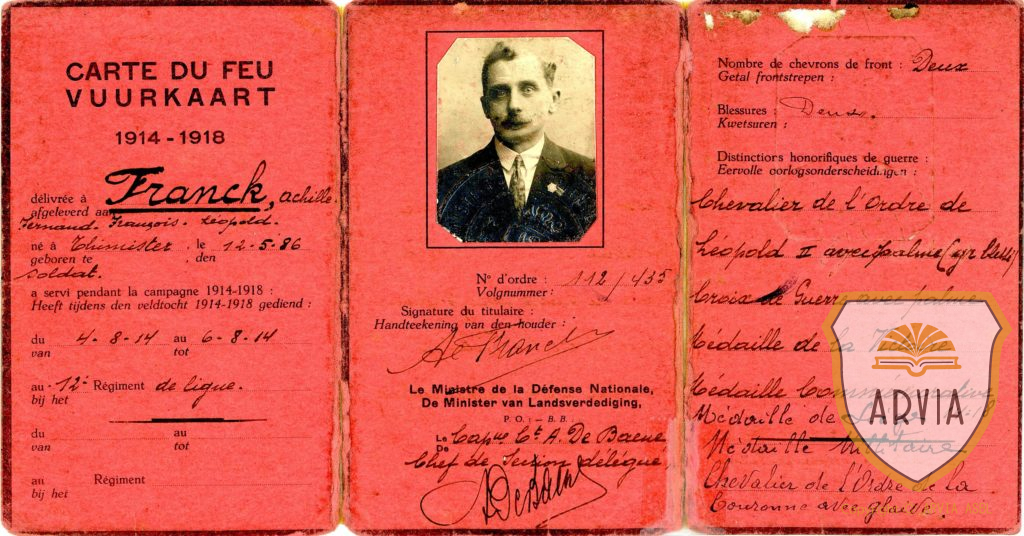 CARTE DU FEU
VUURKAART
1914 - 1918
délivrée à Franck, Achille
afgeleverd aan
Fernand. François. Léopold.
né à Thimister, le 12-5-86
geboren te , den
Soldat.
a servi pendant la campagne 1914-1918 :
Heeft tijdens den veldtocht 1914-1918 gediend :
du 4-8-14 au 6-8-14
van tot
au 12e Régiment de ligne.
bij het
du au
van tot
au Régiment
bij het
N° d'ordre : 112/435
Volgnummer :
Signature du titulaire :
Handteekening van den houder :
Franck
Le Ministre de la Défense Nationale,
De Minister van Landsverdediging,
P. O. : - B. B.
Le Capne Ct A. De Baene
De
Chef de Section délégué
A. De Baene
Nombre de chevrons de front : Deux
Getal frontstrepen :
Blessures : Deux.
Kwetsuren :
Distinctions honorifiques de guerre :
Eervolle oorlogsonderscheidingen :
Chevalier de l'Ordre de
Léopold II avec palme (gr bles)
Croix de Guerre avec palme
Médaille de la Victoire
Médaille Commémorative
Médaille de
Médaille Militaire
Chevalier de l'Ordre de la
Couronne avec glaive.
ARVIA